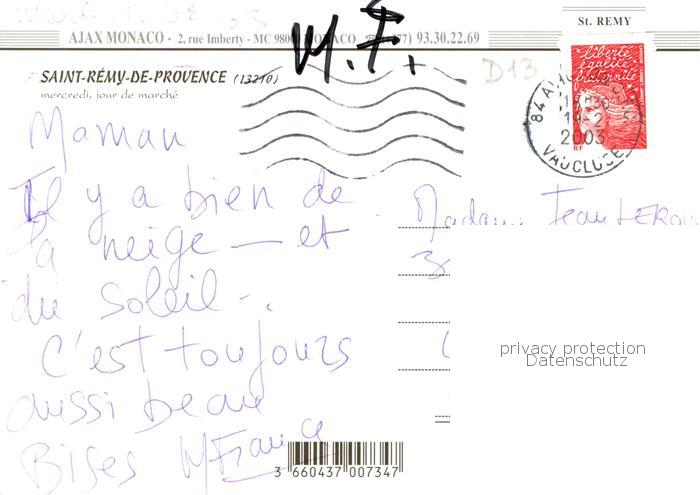 AJAX MONACO - 2, rue Imberty - MC 98000 MONACO ☎ (377) 93.30.22.69
St. REMY
M.F.
D13
SAINT-RÉMY-DE-PROVENCE (13210)
mercredi, jour de marché
liberté
égalité
fraternité
RF
84 AVIGNON
17H30
19-2
2003
VAUCLUSE
Maman
Il y a bien de
la neige — et
du soleil -.
C'est toujours
aussi beau
Bises MFrance
Madame Jean LEROU
privacy protection
Datenschutz
3 660437 007347